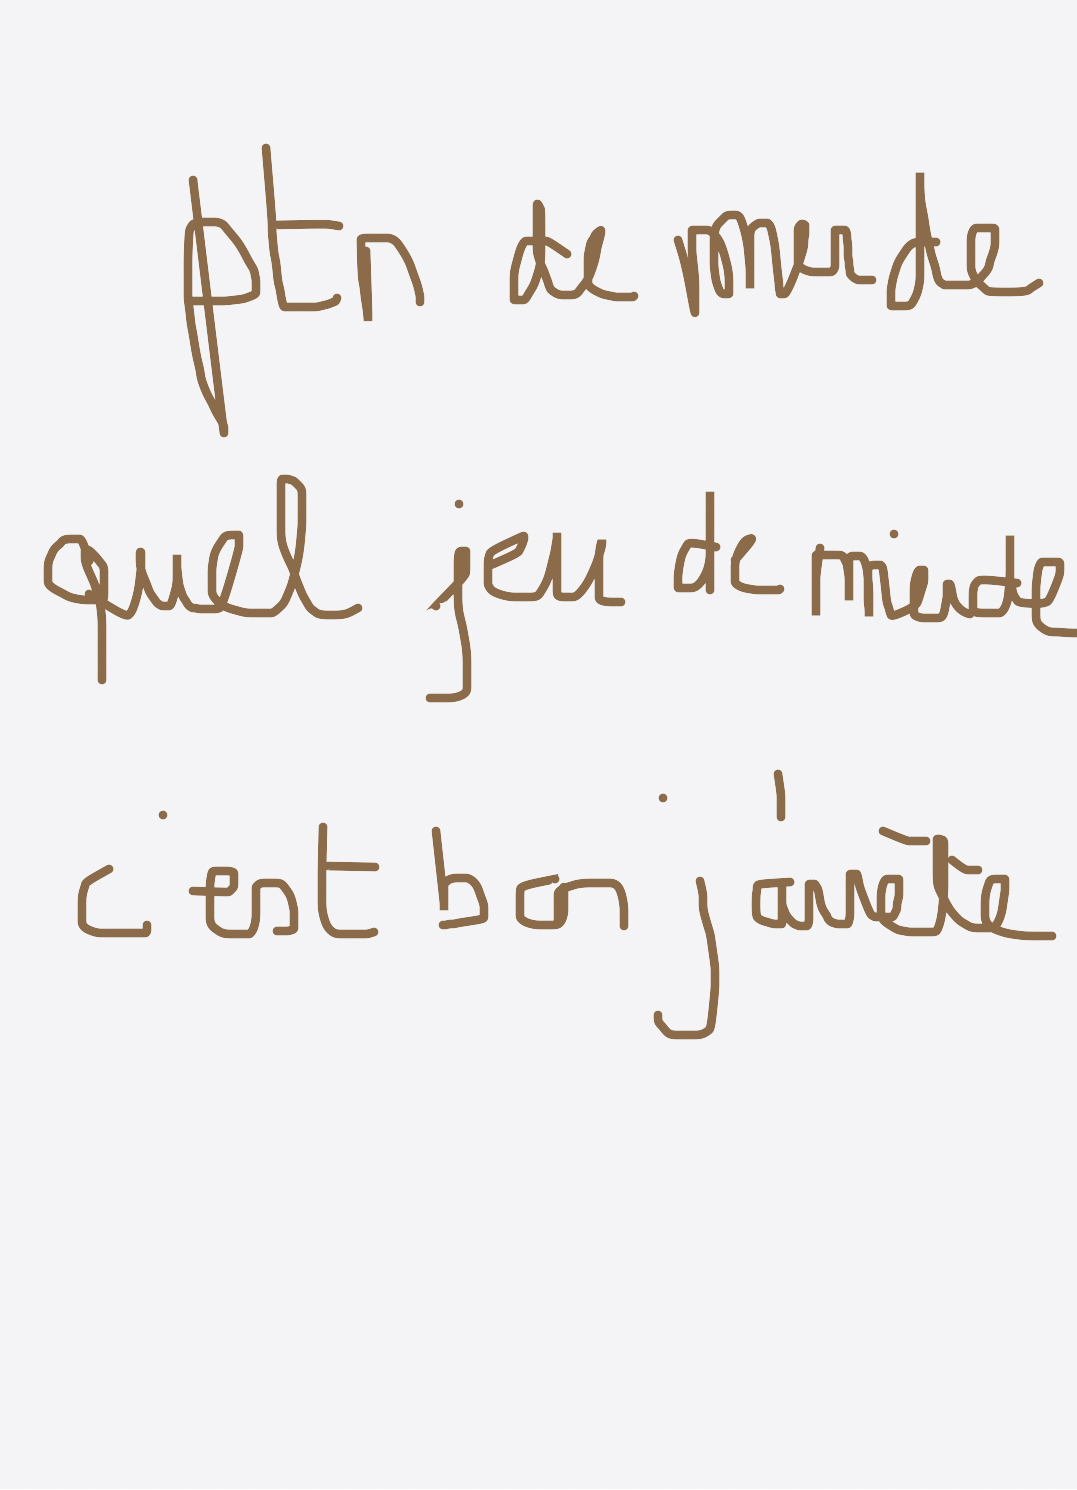 ptn de merde
quel jeu de mierde
c'est bon j'arrête